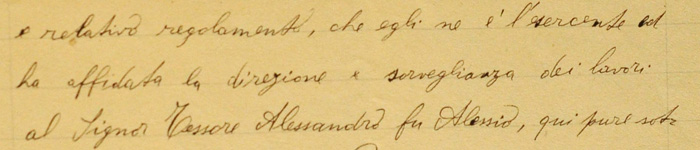 e relativo regolamento, che egli ne è l'esercente ed
ha affidata la direzione e sorveglianza dei lavori
al Signor Tessore Alessandro fu Alessio, qui pure sotto